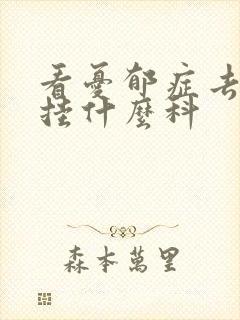 看憂郁症去
挂什麼科
森本萬里